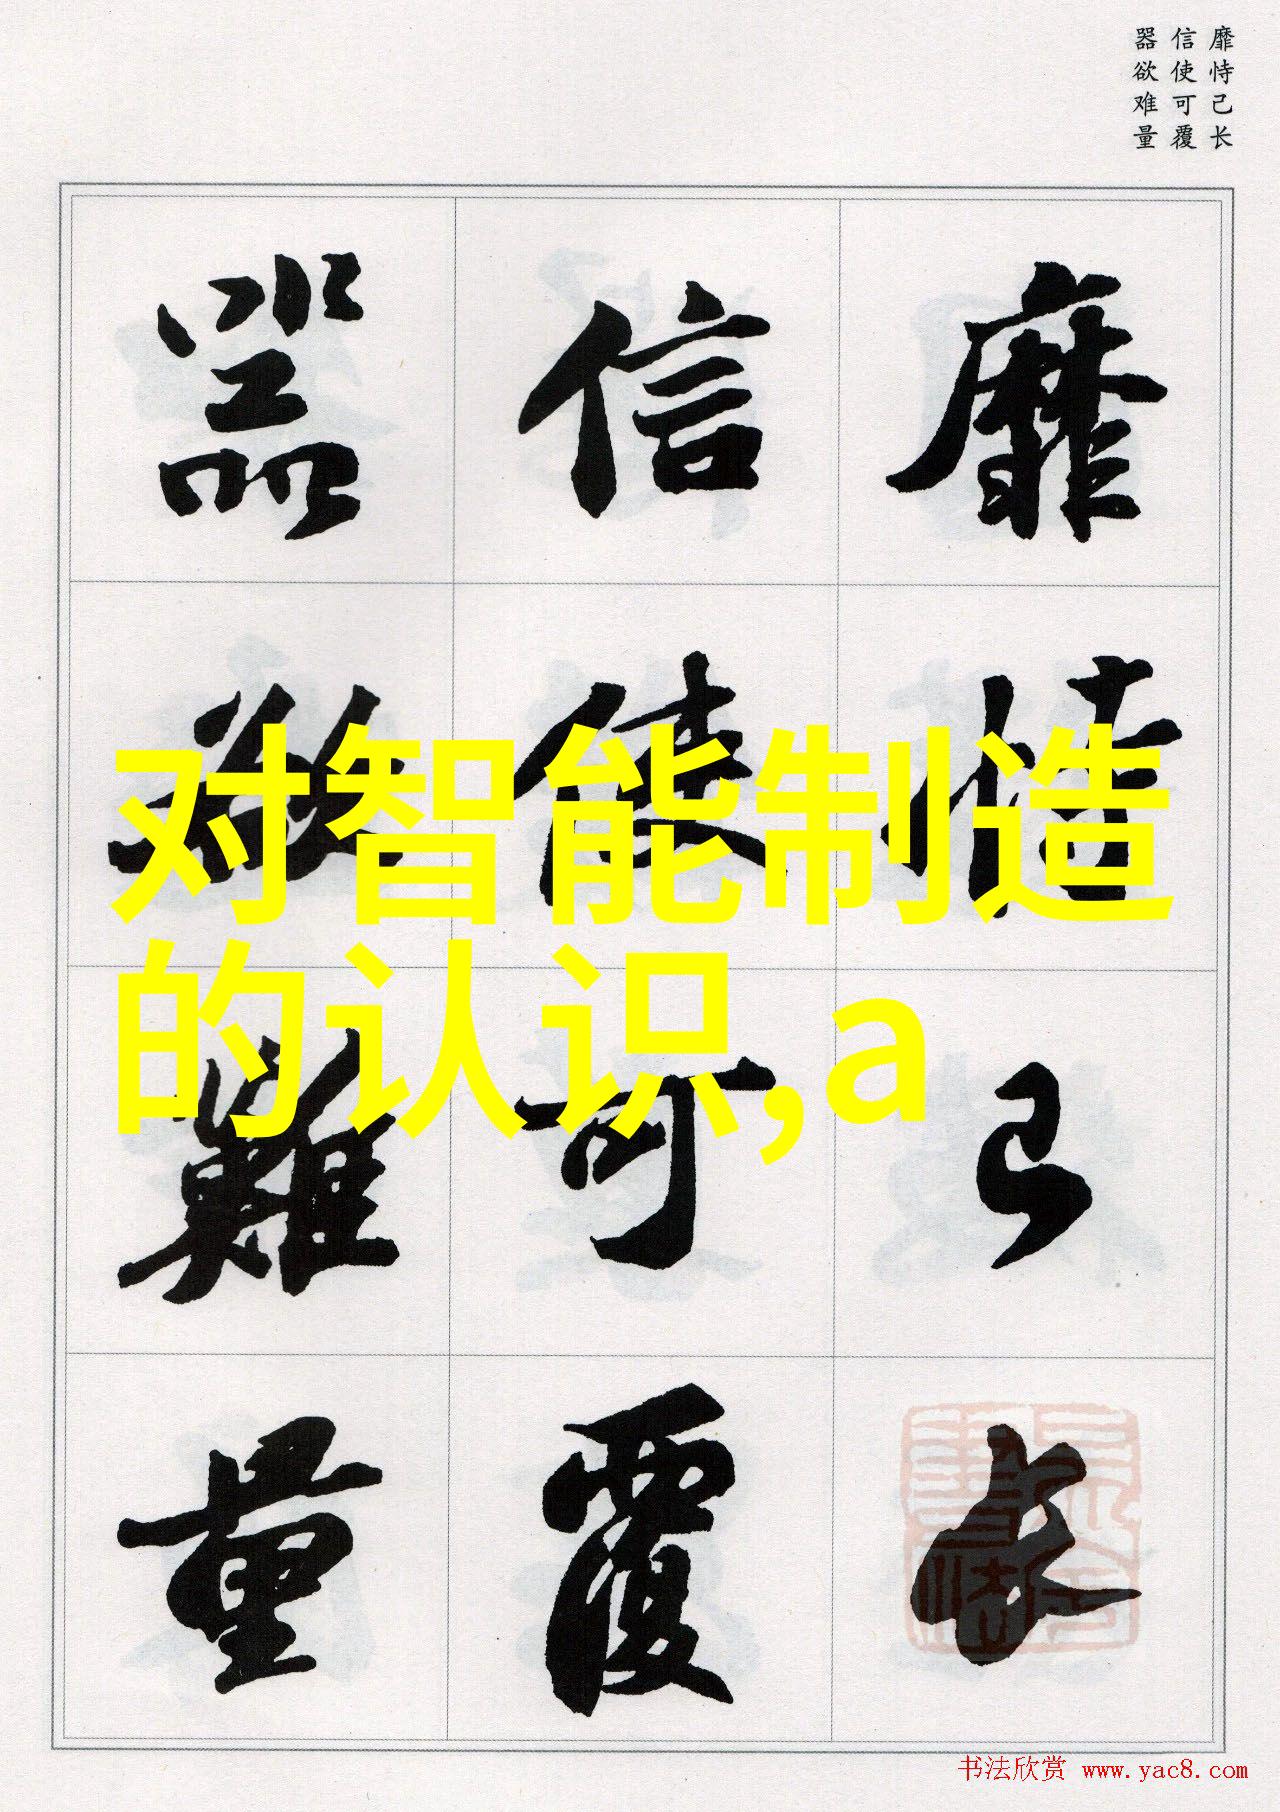 靡恃己长
信使可覆
器欲难量
靡恃己长
信使可覆
器欲難量
对智能制造
的认识,a
书法欣赏 www.yac8.com